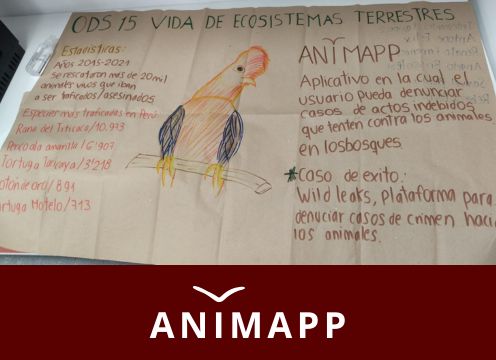 ODS 15 VIDA DE ECOSISTEMAS TERRESTRES
Estadísticas:
Años 2015-2021
Se rescataron más de 20mil
animales vivos que iban
a ser traficados/asesinados
Especies más traficadas en Perú
Rana del Titicaca/10.973
Perico ala amarilla/6.907
Tortuga Taricaya/3.218
otón de oro/891
rtuga Motelo/713
ANIMAPP
Aplicativo en la cual el
usuario pueda denunciar
casos de actos indebidos
que tenten contra los animales
en losbosques.
*Caso de exito:
Wild leaks, plataforma para
denuciar casos de crimen haci
los animales.
ANIMAPP